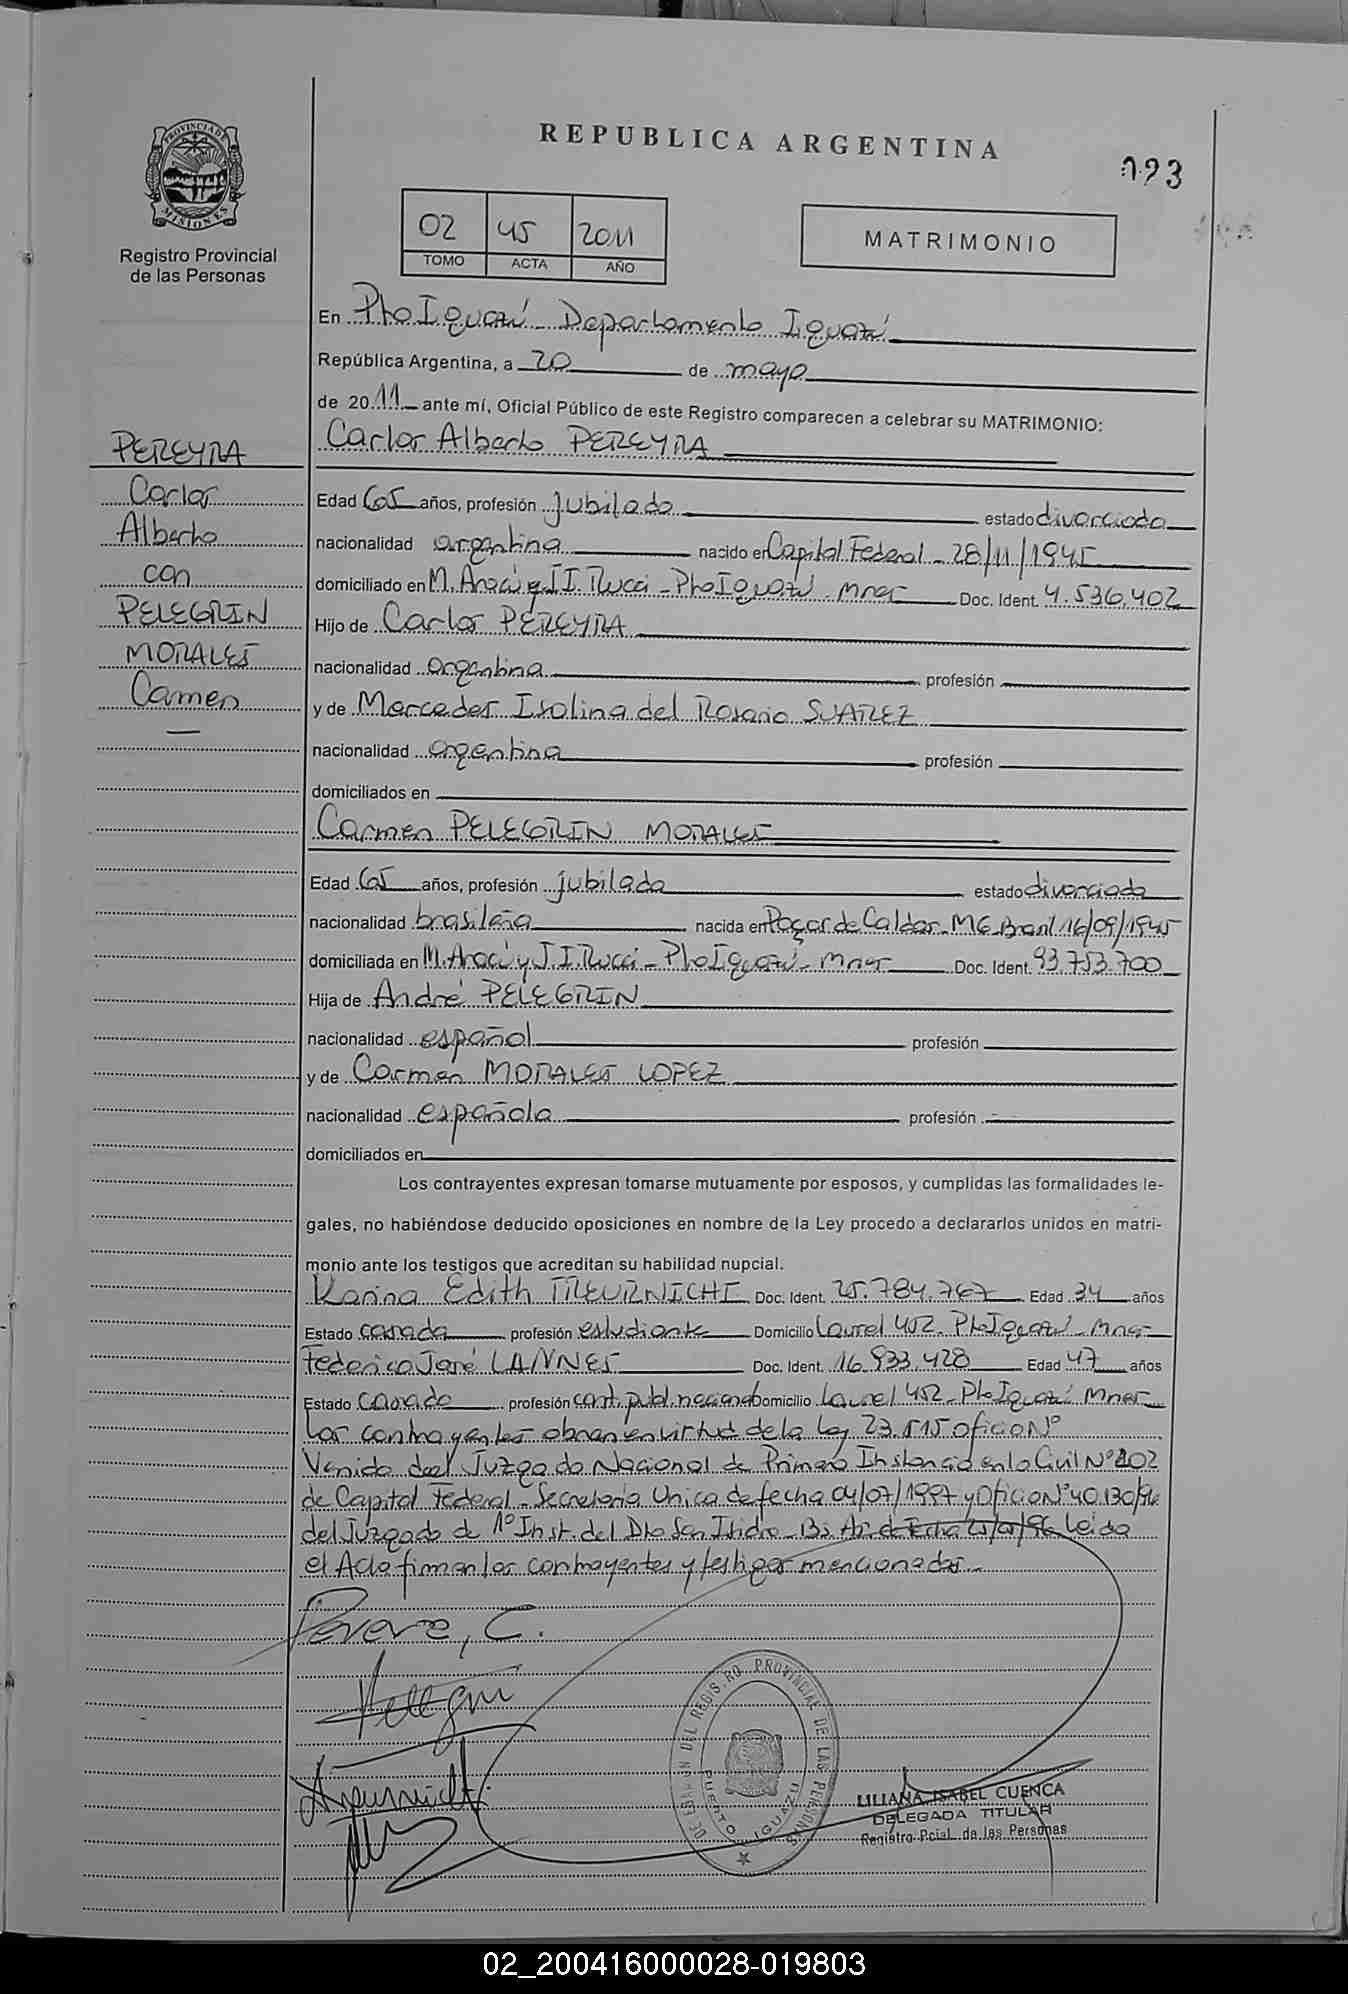 REPUBLICA ARGENTINA
PROVINCIA DE MISIONES
Registro Provincial
de las Personas
02 45 2011
TOMO ACTA AÑO
MATRIMONIO
PEREYRA
Carlos
Alberto
con
PELEGRIN
MORALES
Carmen
En Pto Iguazú - Departamento Iguazú
República Argentina, a 20 de mayo
de 2011 ante mí, Oficial Público de este Registro comparecen a celebrar su MATRIMONIO:
Carlos Alberto PEREYRA
Edad 65 años, profesión jubilado estado divorciado
nacionalidad argentina nacido en Capital Federal - 28/11/1945
domiciliado en M. Aracì y J.I. Rucci - Pto Iguazú - Mnes Doc. Ident. 4.536.402
Hijo de Carlos PEREYRA
nacionalidad argentina profesión
y de Mercedes Isolina del Rosario SUAREZ
nacionalidad argentina profesión
domiciliados en
Carmen PELEGRIN MORALES
Edad 65 años, profesión jubilada estado divorciada
nacionalidad brasileña nacida en Poços de Caldas - MG - Brasil 16/09/1945
domiciliada en M. Aracì y J.I. Rucci - Pto Iguazú - Mnes Doc. Ident. 93.753.700
Hija de André PELEGRIN
nacionalidad español profesión
y de Carmen MORALES LOPEZ
nacionalidad española profesión
domiciliados en
Los contrayentes expresan tomarse mutuamente por esposos, y cumplidas las formalidades le-
gales, no habiéndose deducido oposiciones en nombre de la Ley procedo a declararlos unidos en matri-
monio ante los testigos que acreditan su habilidad nupcial.
Karina Edith Doc. Ident. 25.784.767 Edad 34 años
Estado casada profesión estudiante Domicilio Laurel 452 - Pto Iguazú - Mnes
Federico José LANNES Doc. Ident. 16.933.428 Edad 47 años
Estado casado profesión cont. publ. nacional Domicilio Laurel 452 - Pto Iguazú Mnes
Los contrayentes obran en virtud de la Ley 23.515 Oficio Nº
Venido del Juzgado Nacional de Primera Instancia en lo Civil Nº 102
de Capital Federal - Secretaría Unica de fecha 04/07/1997 y Oficio Nº 40.130/96
del Juzgado de 1º Inst. del Dto San Isidro - Bs As de Fecha Leida
el Acta firman los contrayentes y testigos mencionados.-
DELEGACION DEL REGISTRO PROVINCIAL DE LAS PERSONAS
PUERTO IGUAZU
LILIANA ISABEL CUENCA
DELEGADA TITULAR
Registro Pcial. de las Personas
02_200416000028-019803